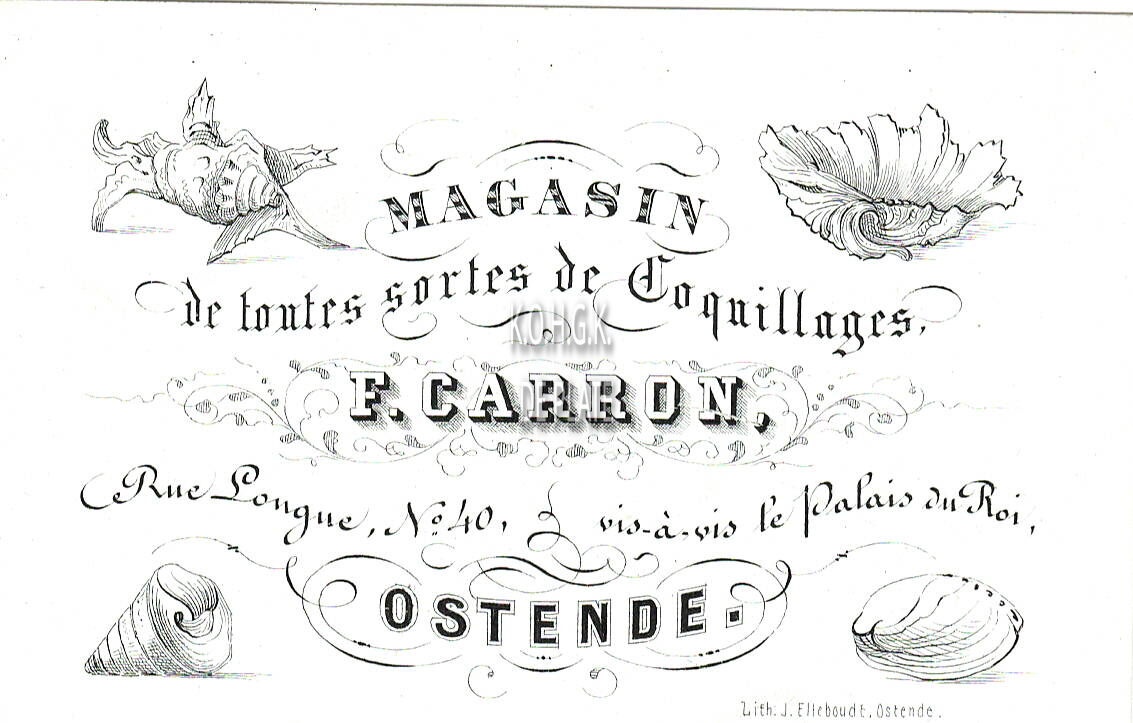 MAGASIN
de toutes sortes de Coquillages,
K.O.H.G.K.
F. CARRON,
DE PLATE
Rue Longue, No. 40, vis-à-vis le Palais du Roi,
OSTENDE.
Lith: J. Elleboudt, Ostende.